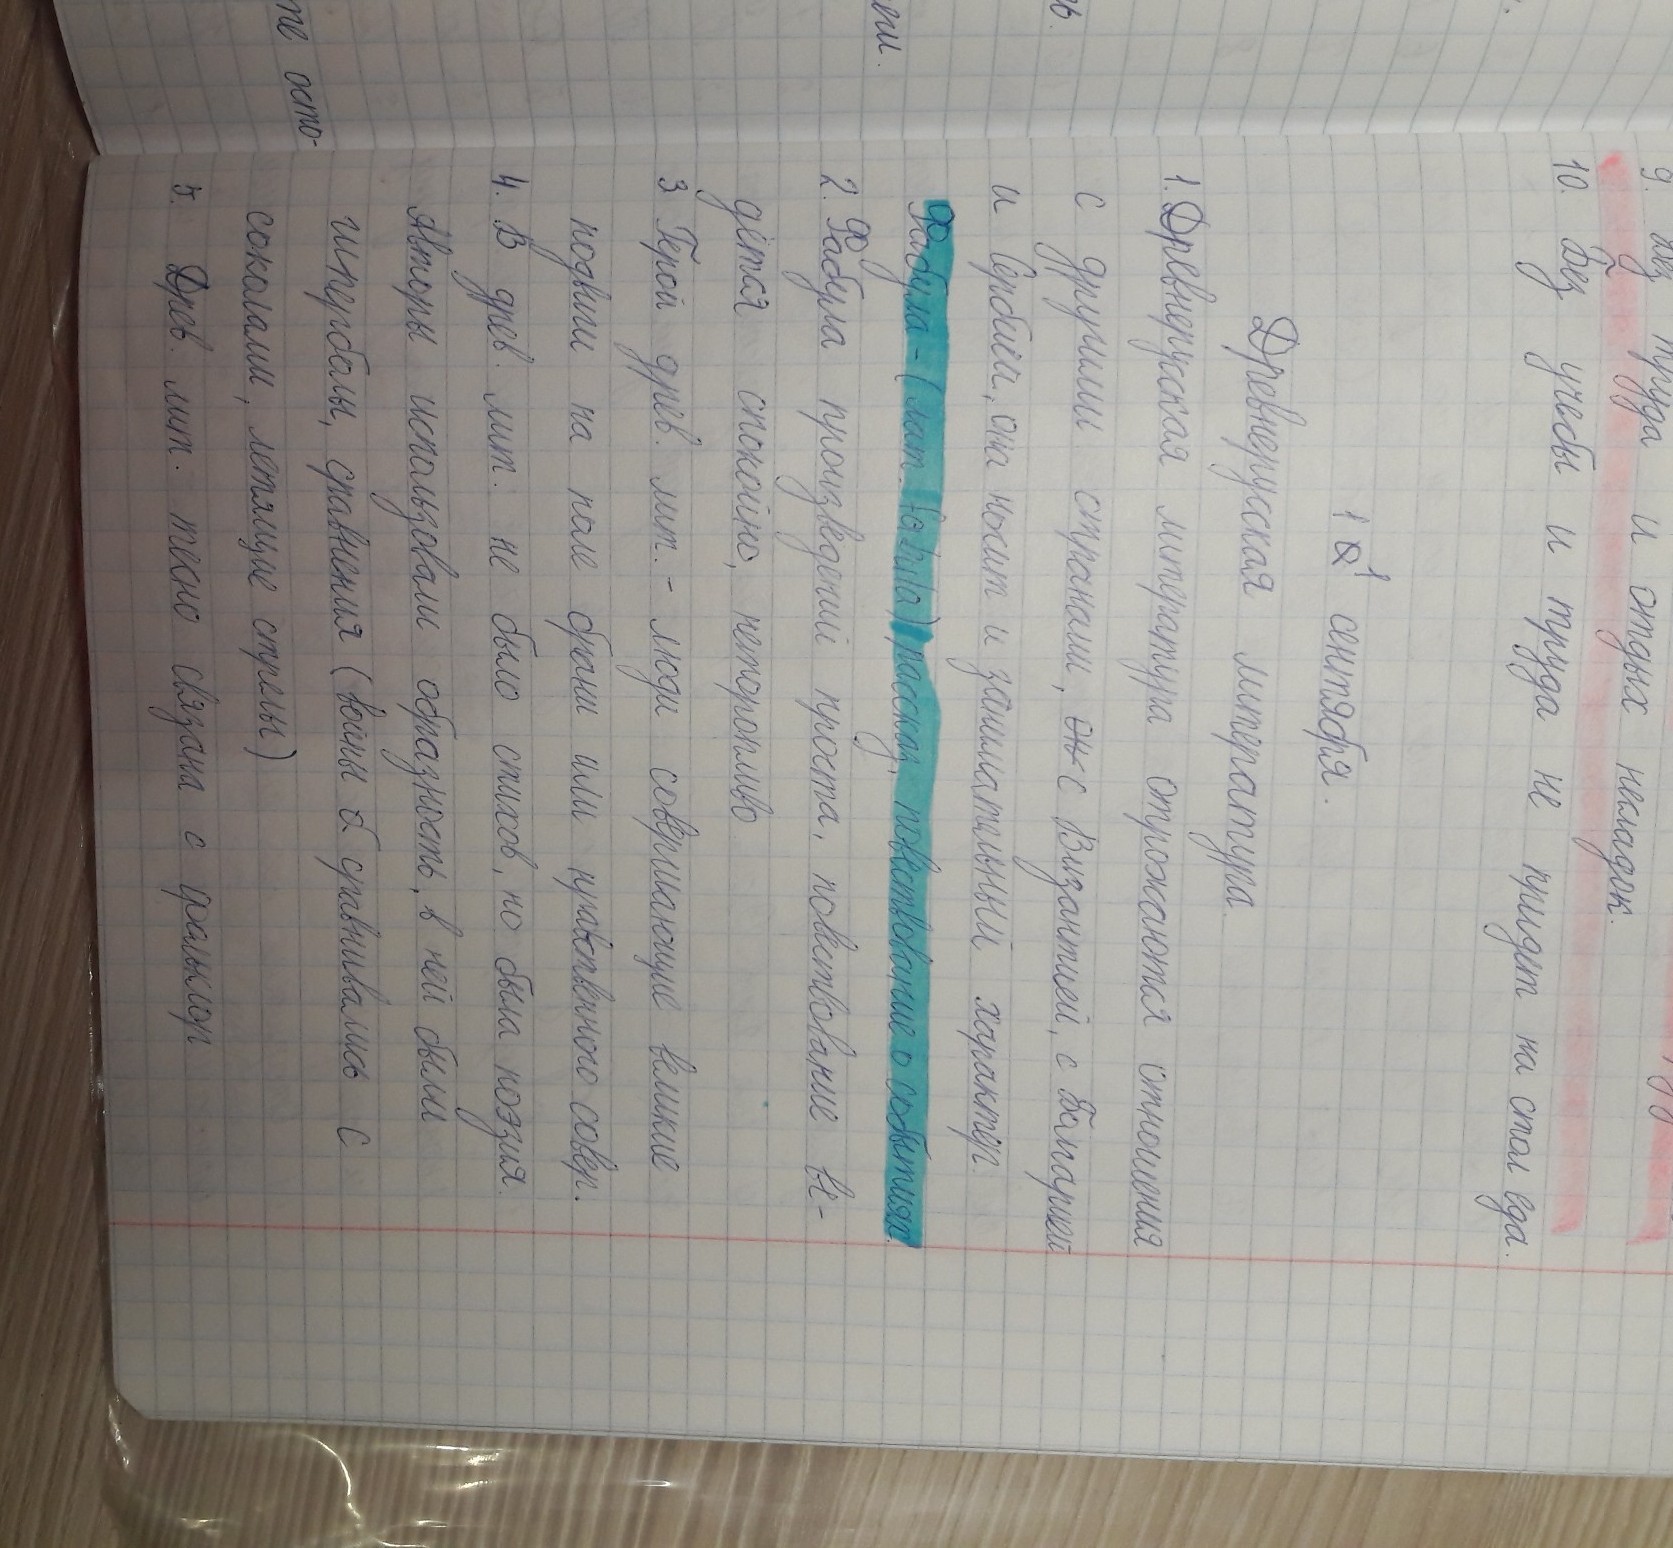 9. Без труда и отдых несладок.
10. Без учебы и труда не придет на стол еда.
11 сентября.
Древнерусская литература
1. Древнерусская литература отрожаются отношения
с другими странами, с Византией, с Болгарией
и Сербией, она носит и занимательный характер.
Фабула - (лат. fabula) рассказ, повествование о событиях.
2. Фабула произведений проста, повествование ве-
дётся спокойно, неторопливо.
3 Герой древ. лит. - люди совершающие великие
подвиги на поле брани или нравственного совер.
4. В древ. лит. не было стихов, но была поэзия.
Авторы использовали образность, в ней были
гиперболы, сравнения (войны сравнивались с
соколами, летящие стрелы)
5. Древ. лит. тесно связана с фольклор
те осто-